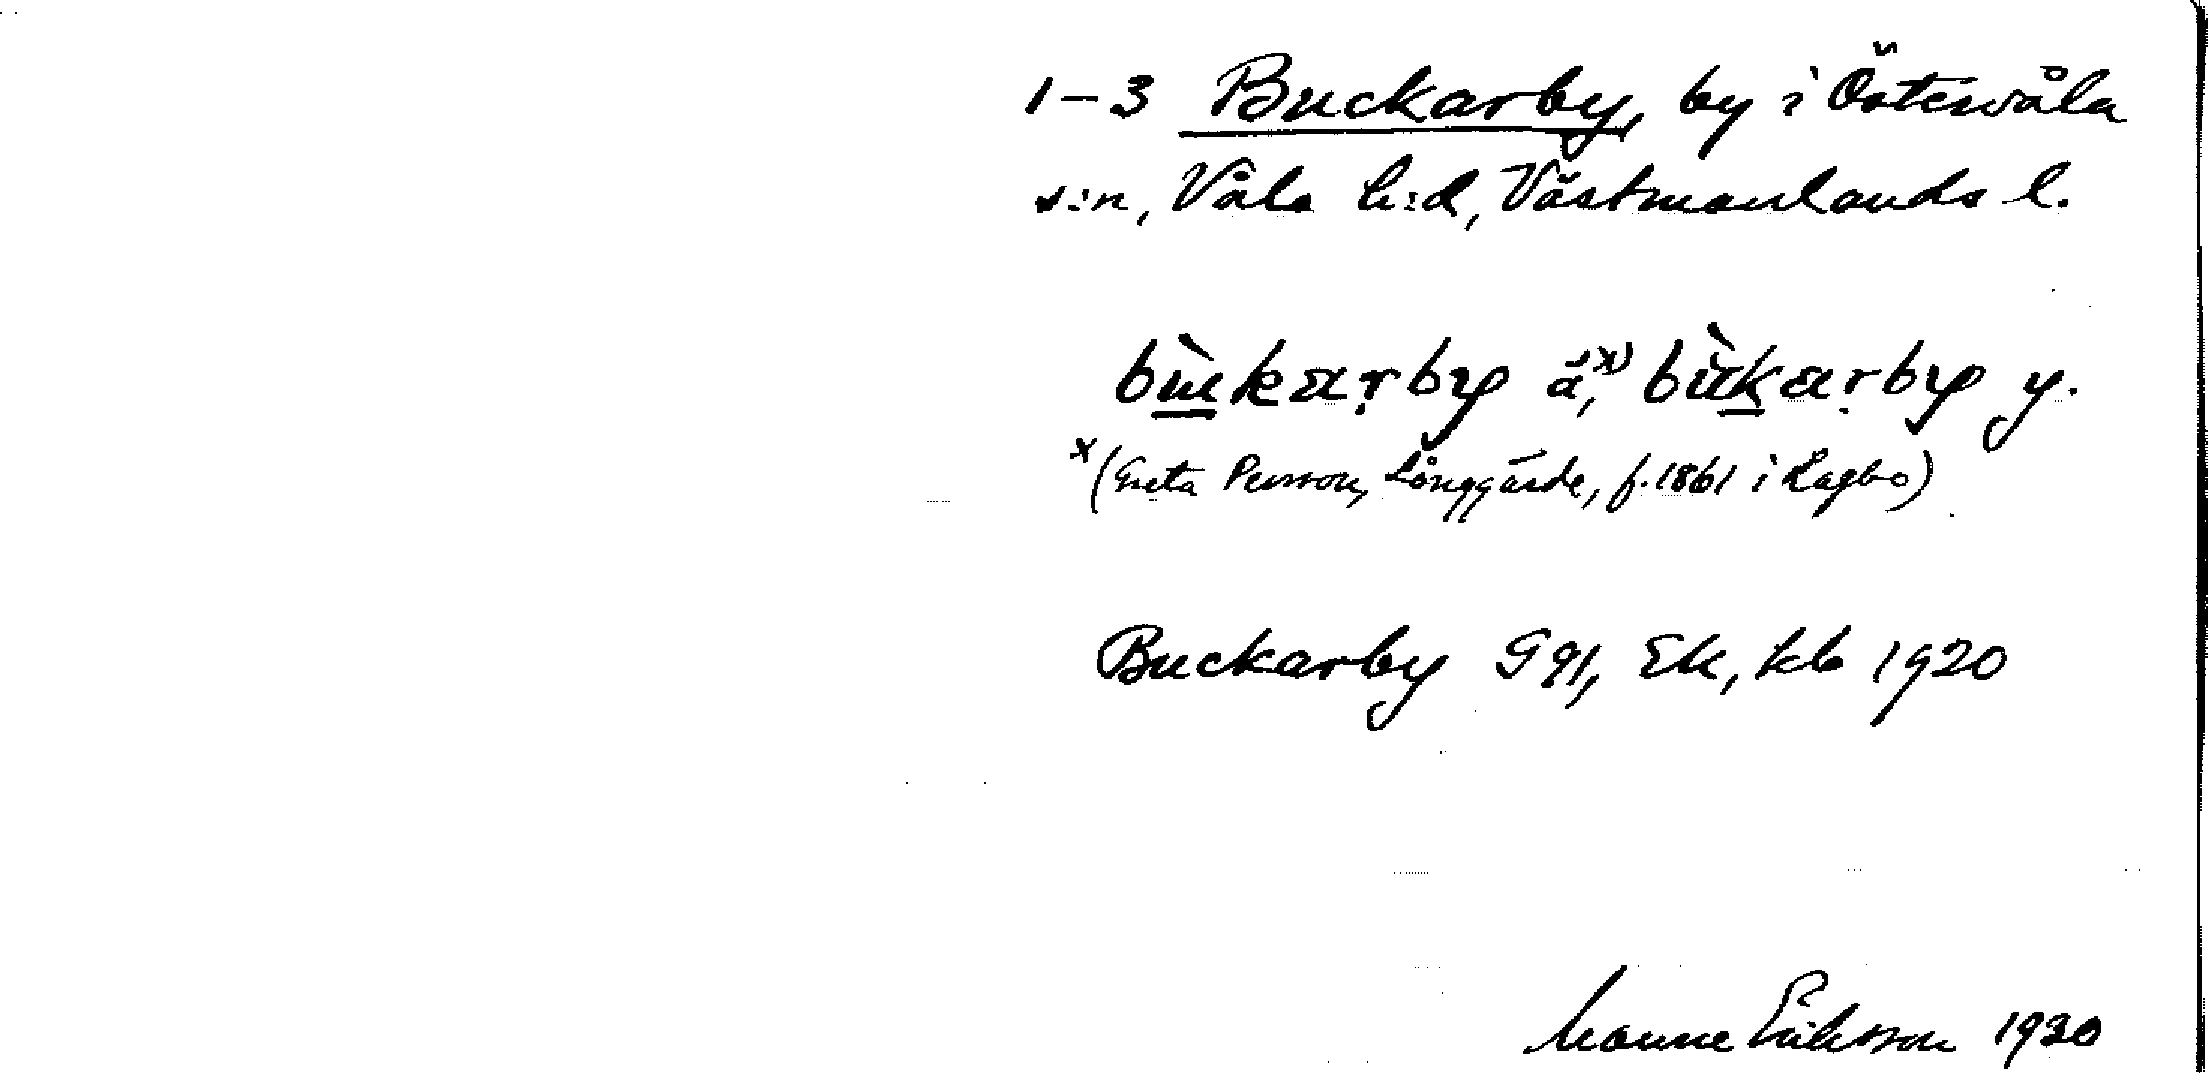 1–3 Buckarby, by i Östervåla
s:n, Våla h:d, Västmanlands l.
bùkarby ä,ˣ⁾ bùkarby y.
x (Greta Persson, Långgärde, f. 1861 i Lagbo)
Buckarby G 91, Ek, kb 1920
Manne Eriksson 1930